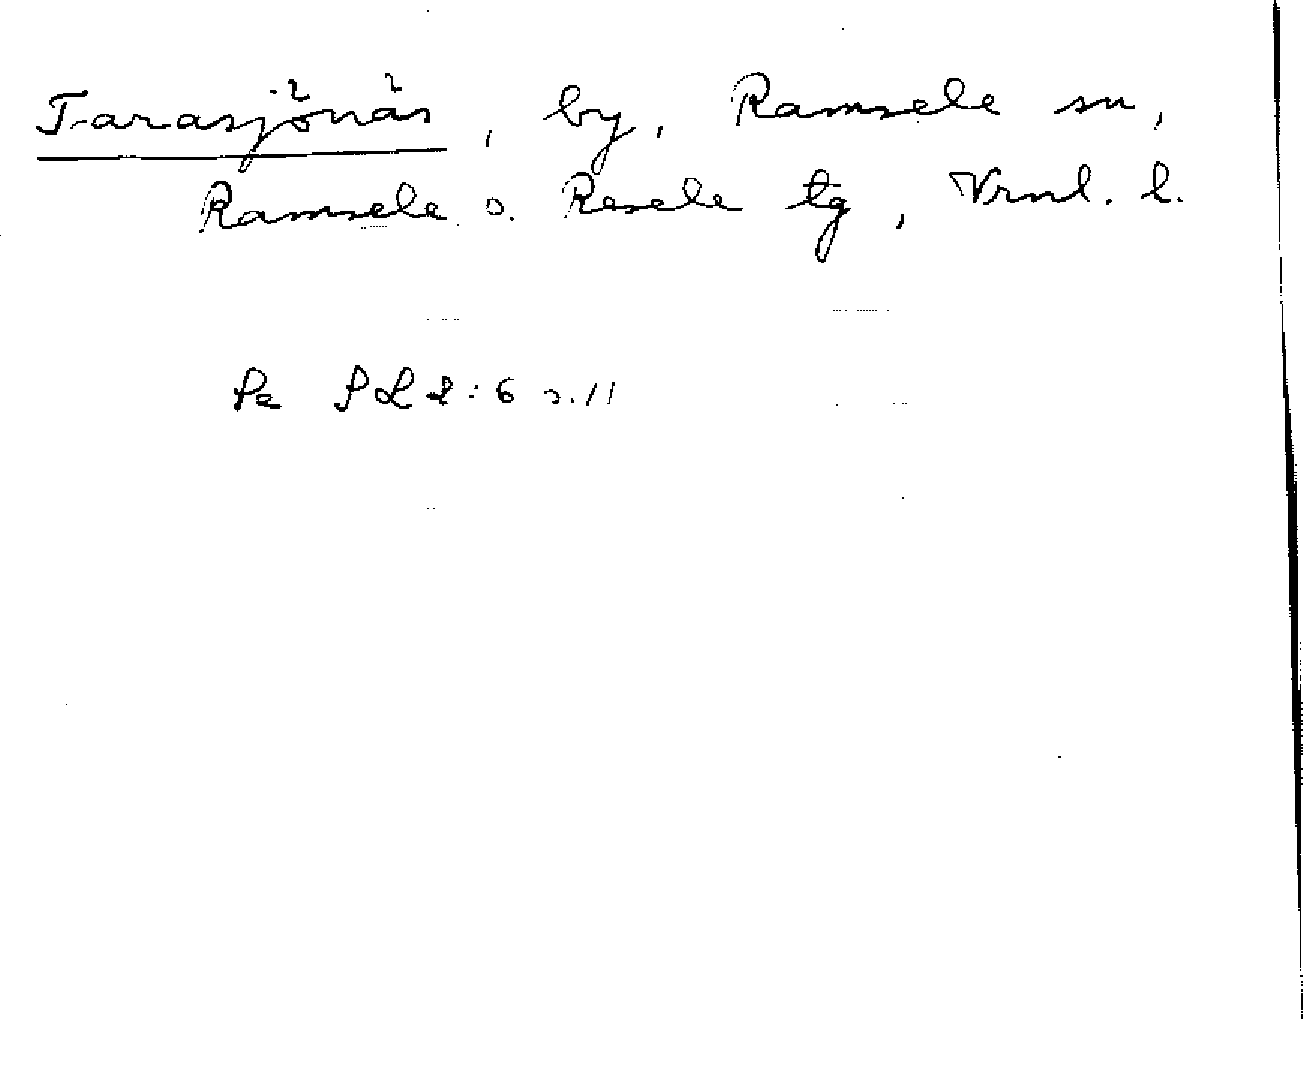 Tarasjönäs, by, Ramsele sn,
Ramsele o. Resele tg, Vrnl. l.
Se PL 2:6 s. 11